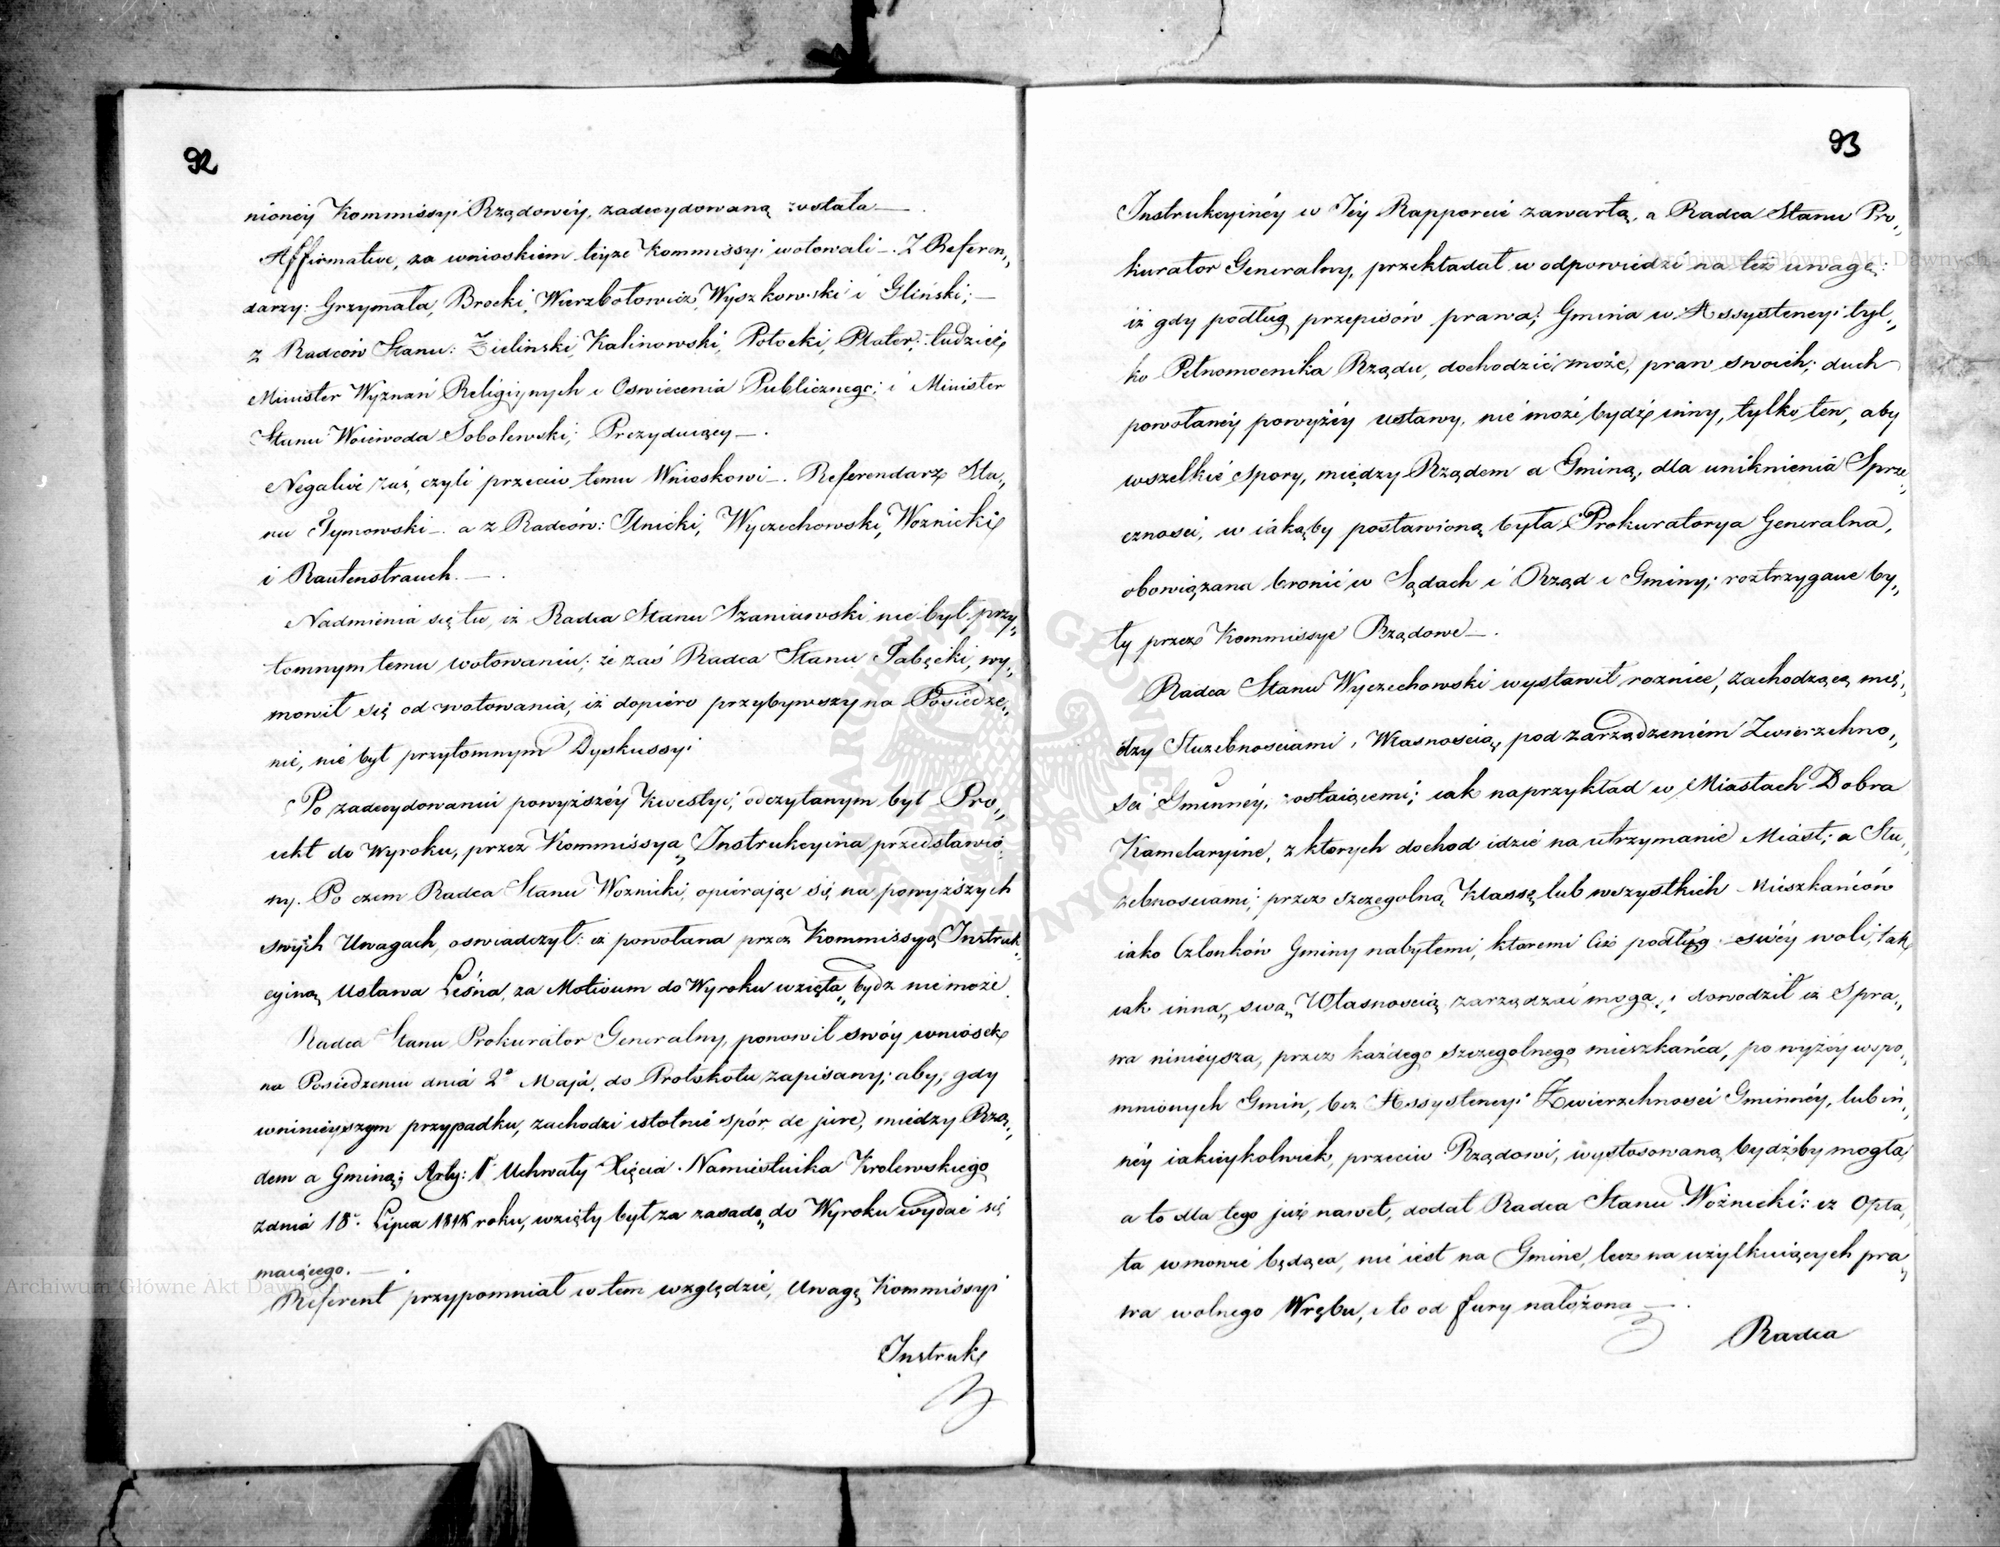 92
nioney Kommissyi Rządowéy, zadecydowaną została —.
Affirmative, za wnioskiem teyże Kommissyi wotowali —. Z Referen„
darzy: Grzymała, Brocki, Wierzbołowicz, Wyszkowski i Gliński; —
z Radców Stanu: Zieliński, Kalinowski, Potocki, Plater; tudzież
Minister Wyznań Religiynych i Oswiecenia Publicznego; i Minister
Stanu Woiewoda Sobolewski; Prezyduiący —.
Negative zaś, czyli przeciw temu Wnioskowi —. Referendarz Sta„
nu Tymowski —. a z Radców: Ilnicki, Wyczechowski, Woznicki
i Rautenstrauch. — .
Nadmienia się tu, iż Radca Stanu Szaniawski nie był przy„
tomnym temu wotowaniu; że zaś Radca Stanu Tabęcki, wy„
mowił się od wotowania, iż dopiero przybywszy na Posiedze„
nie, nie był przytomnym Dyskussyi
Po zadecydowaniu powyższéy Kwestyi, odczytanym był Pro„
iekt do Wyroku, przez Kommissyą Instrukcyina przedstawio„
ny. Po czem Radca Stanu Woznicki, opierając się na powyższych
swych Uwagach, oswiadczył: iż powołana przez Kommissyą Instruk„
cyiną Ustawa Leśna, za Motivum do Wyroku wzięta bydz nie może.
Radca Stanu Prokurator Generalny, ponowił swóy wniosek
na Posiedzeniu dnia 2o Maja, do Protokołu zapisany; aby, gdy
w ninieyszym przypadku, zachodzi istotnie spór de jure, między Rzą„
dem a Gminą; Arty: 1 Uchwały Xięcia Namiestnika Krolewskiego
z dnia 18o Lipca 1818 roku, wzięty był za zasadę do Wyroku wydać się
maiącego. — .
Referent przypomniał w tem względzie, Uwagę Kommissyi
Instruk
93
Instrukcyinéy w Jéy Rapporcie zawartą, a Radca Stanu Pro„
kurator Generalny, przekładał w odpowiedzi na też uwagę:
iż gdy podług przepisów prawa, Gmina w Assystencyi tyl„
ko Pełnomocnika Rządu, dochodzić może, praw swoich; duch
powołanéy powyżéy ustawy, nie może bydź inny, tylko ten, aby
wszelkie spory, między Rządem a Gminą, dla uniknienia Sprze„
cznosci, w iakąby postawioną była Prokuratorya Generalna,
obowiązana bronić w Sądach i Rząd i Gminy; roztrzygane by„
ły przez Kommissye Rządowe —.
Radca Stanu Wyczechowski wystawił roznicę, zachodzącą mię„
dzy Służebnosciami i Własnoscią, pod zarządzeniem Zwierzchno„
sci Gminnéy, zostaiącemi; iak naprzykład w Miastach Dobra
Kamelaryine, z ktorych dochod idzie na utrzymanie Miast; a Słu„
żebnosciami; przez szczegolną Klassę lub wszystkich Mieszkańców
iako Członków Gminy nabytemi, ktoremi ciż podług swéy woli, tak
iak inną swą Własnoscią zarządzać mogą; dowodził iż Spra„
wa ninieysza, przez każdego szczegolnego mieszkańca, powyżéy wspo„
mnionych Gmin, bez Assystencyi Zwierzchnosci Gminnéy, lub in„
néy iakieykolwiek, przeciw Rządowi, wystosowaną bydźby mogła;
a to dla tego już nawet, dodał Radca Stanu Woźnicki: iż Opła„
ta w mowie będąca, nie iest na Gminę, lecz na użytkuiących pra„
wa wolnego Wrębu, i to od fury nałożona — .
Radca